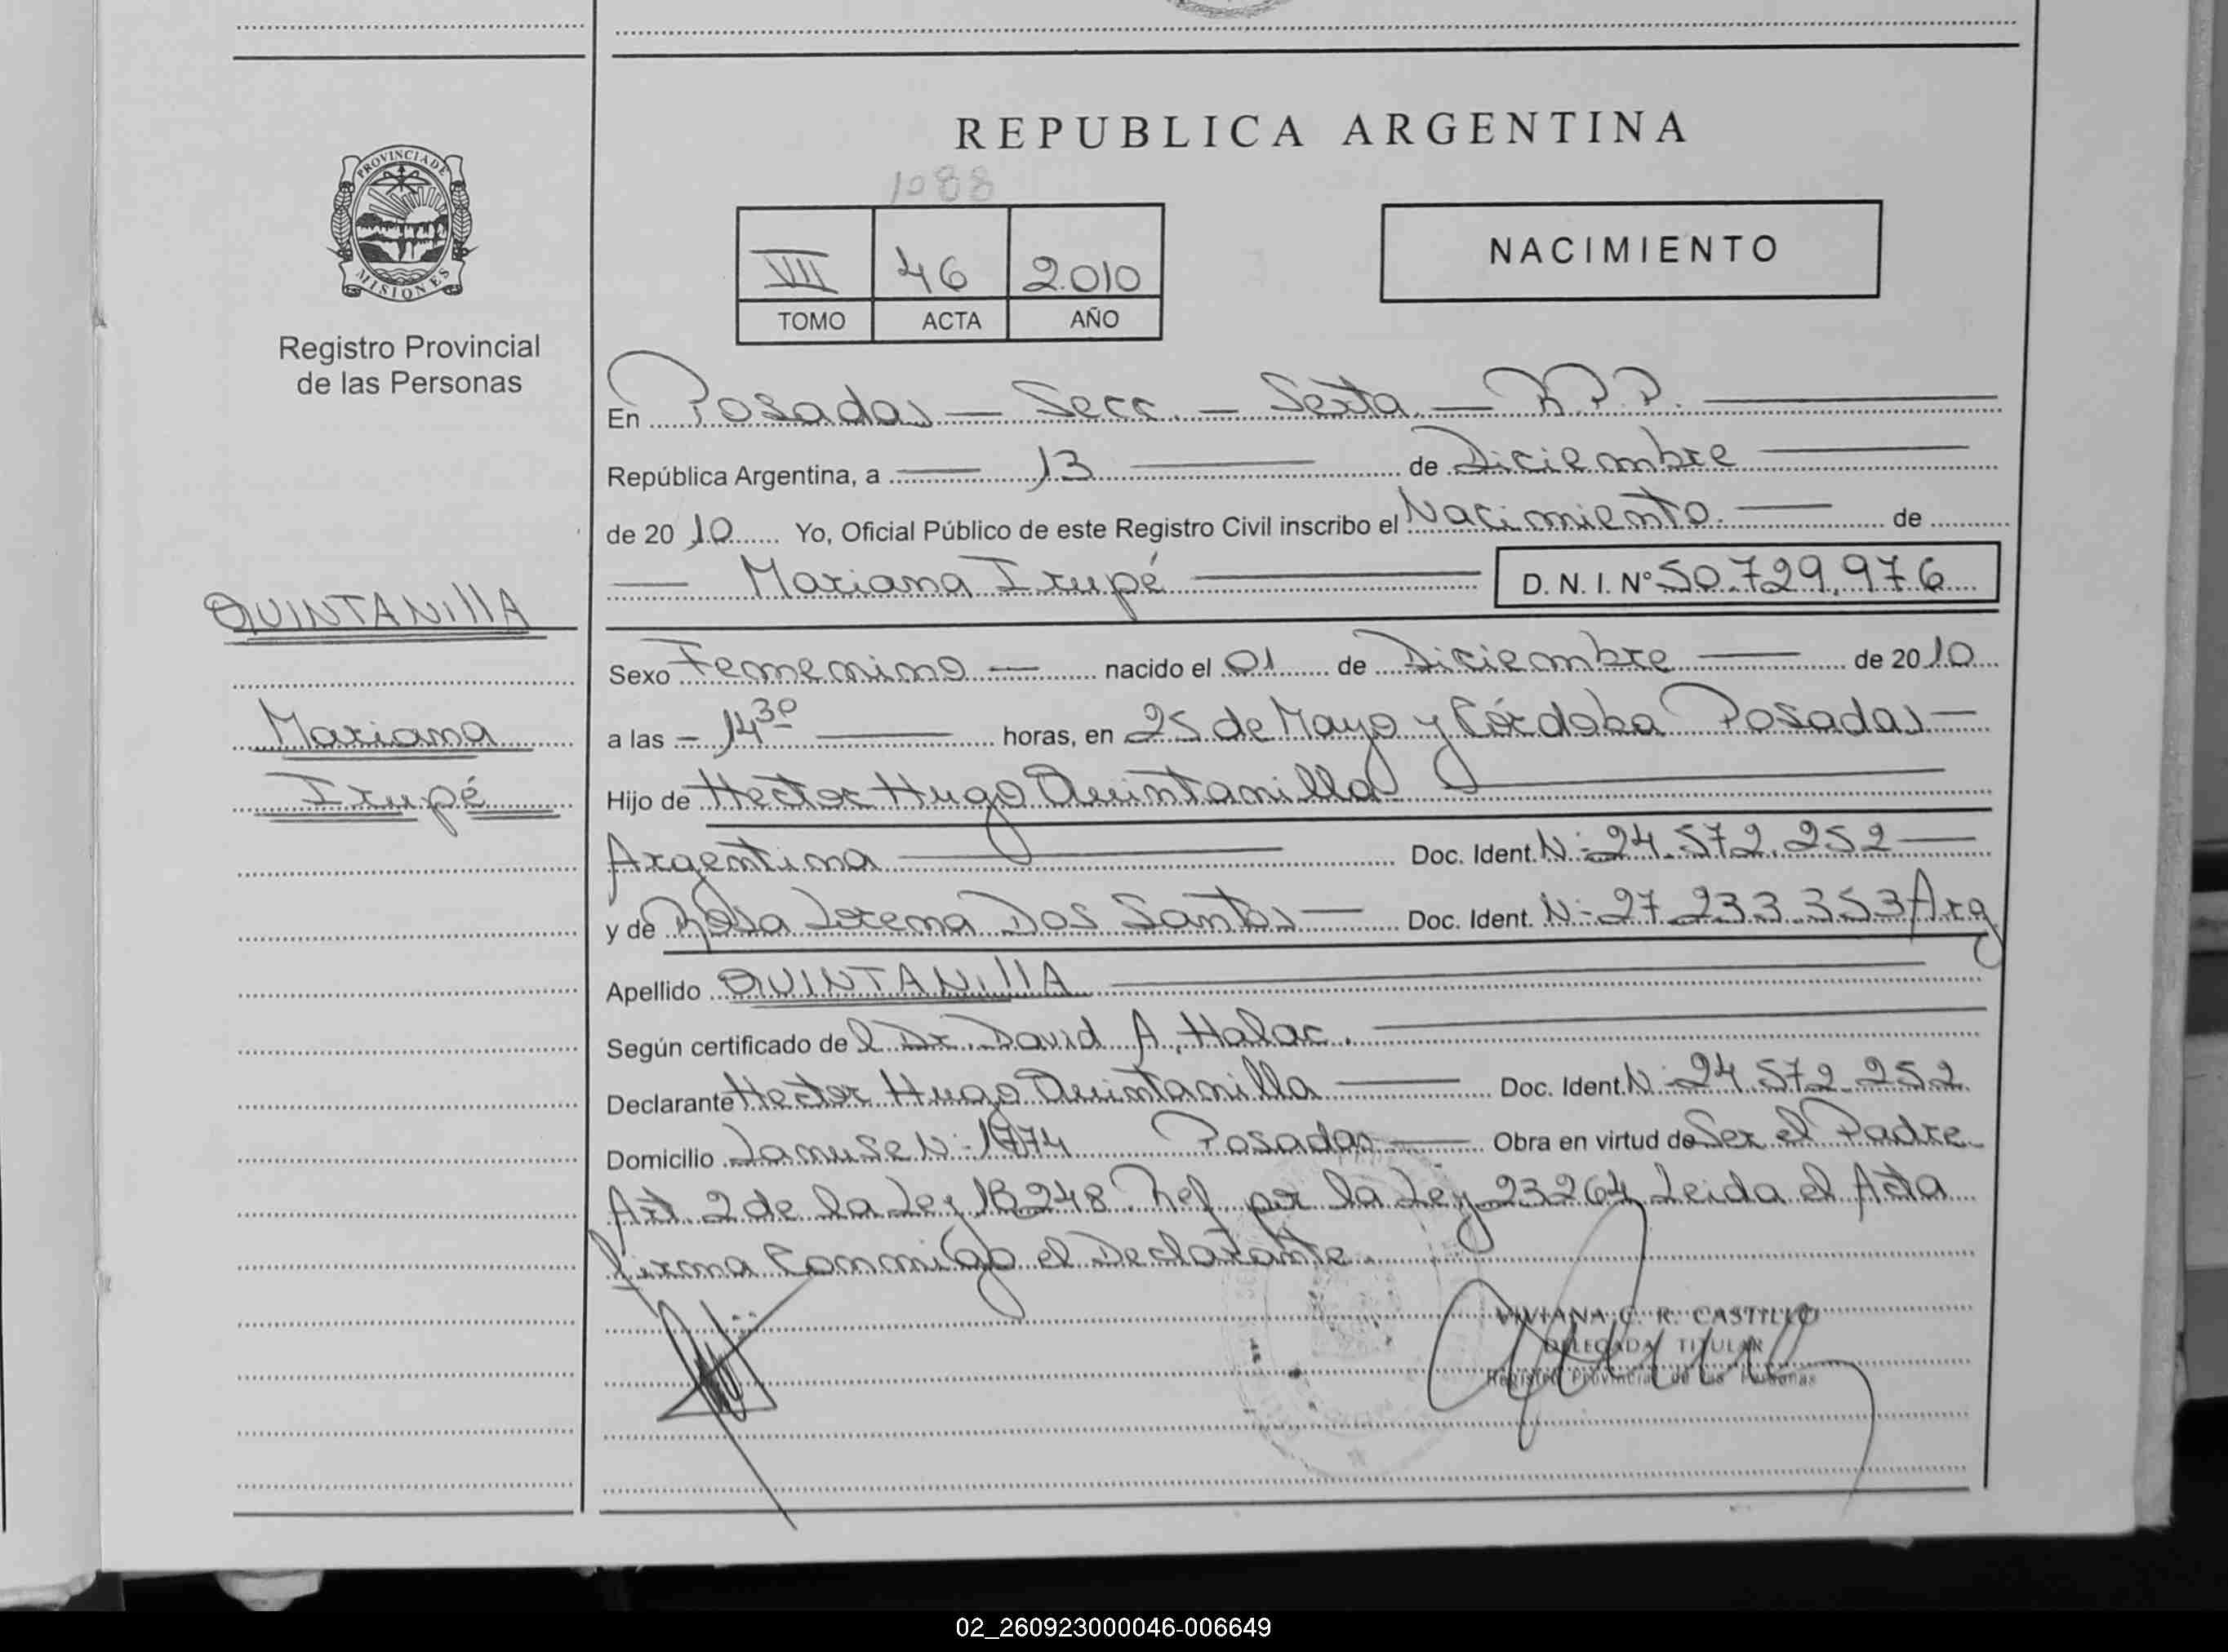 PROVINCIA DE
MISIONES
Registro Provincial
de las Personas
QUINTANILLA
Mariana
Irupé
REPUBLICA ARGENTINA
1088
VII 46 2.010
TOMO ACTA AÑO
NACIMIENTO
En Posadas — Secc. — Sexta — R.P.P.
República Argentina, a — 13 — de Diciembre
de 20 10 Yo, Oficial Público de este Registro Civil inscribo el Nacimiento. — de
— Mariana Irupé — D. N. I. Nº 50.729.976
Sexo Femenino — nacido el 01 de Diciembre — de 20 10
a las – 14 30 — horas, en 25 de Mayo y Córdoba Posadas —
Hijo de Hector Hugo Quintanilla
Argentina — Doc. Ident. N: 24.572.252 —
y de Rosa Lorena Dos Santos — Doc. Ident. N: 27.233.353 Arg
Apellido QUINTANILLA
Según certificado de l Dr. David A. Halac.
Declarante Hector Hugo Quintanilla — Doc. Ident. N: 24.572.252
Domicilio Lanuse N: 1774 Posadas — Obra en virtud de Ser el Padre
Art 2 de la Ley 18248 Ref por la Ley 23264 Leida el Acta
firma Conmigo el Declarante.
VIVIANA C. R. CASTILLO
DELEGADA TITULAR
Registro Provincial de las Personas
02_260923000046-006649